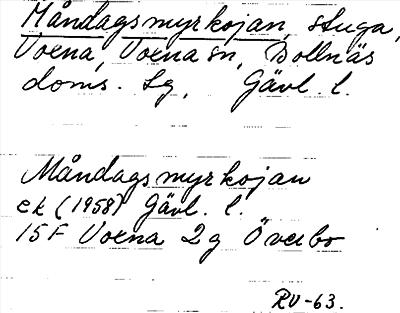 Måndagsmyrkojan, stuga,
Voxna, Voxna sn, Bollnäs
doms. Lg, Gävl. l.
Måndagsmyrkojan
ek (1958) Gävl. l.
15F Voxna 2g Överbo
RV-63.